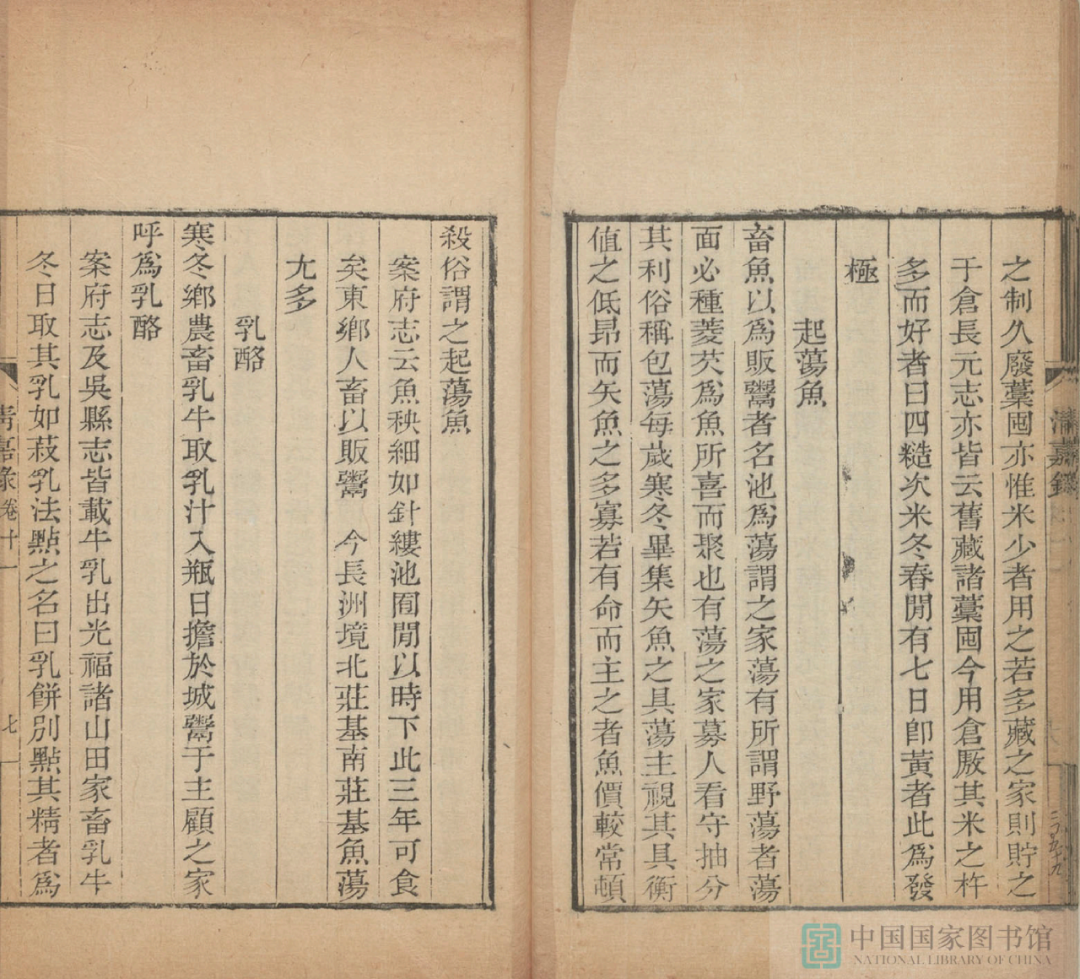 之制久廢藳囤亦惟米少者用之若多藏之家則貯之
于倉長元志亦皆云舊藏諸藳囤今用倉厫其米之杵
多而好者曰四糙次米冬舂閒有七日卽黃者此爲發
極
起蕩魚
畜魚以爲販鬻者名池爲蕩謂之家蕩有所謂野蕩者蕩
面必種菱芡爲魚所喜而聚也有蕩之家募人看守抽分
其利俗稱包蕩每歲寒冬畢集矢魚之具蕩主視其具衡
値之低昻而矢魚之多寡若有命而主之者魚價較常頓
殺俗謂之起蕩魚
案府志云魚秧細如針縷池囿閒以時下此三年可食
矣東鄕人畜以販鬻 今長洲境北莊基南莊基魚蕩
尢多
乳酪
寒冬鄕農畜乳牛取乳汁入瓶日擔於城鬻于主顧之家
呼爲乳酪
案府志及吳縣志皆載牛乳出光福諸山田家畜乳牛
冬日取其乳如菽乳法點之名曰乳餅別點其精者爲
淸嘉錄
卷十一
七
中国国家图书馆
NATIONAL LIBRARY OF CHINA